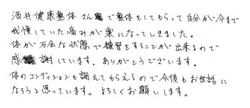 酒井健康整体さんで整体をしてもらって自分が今まで
我慢していた痛みが楽になってきました。
体が万全な状態で練習をすることが出来るので
感謝しています。ありがとうございます。
体のコンディションも調えてもらえるので今後もお世話に
なろうと思っています。よろしくお願いします。